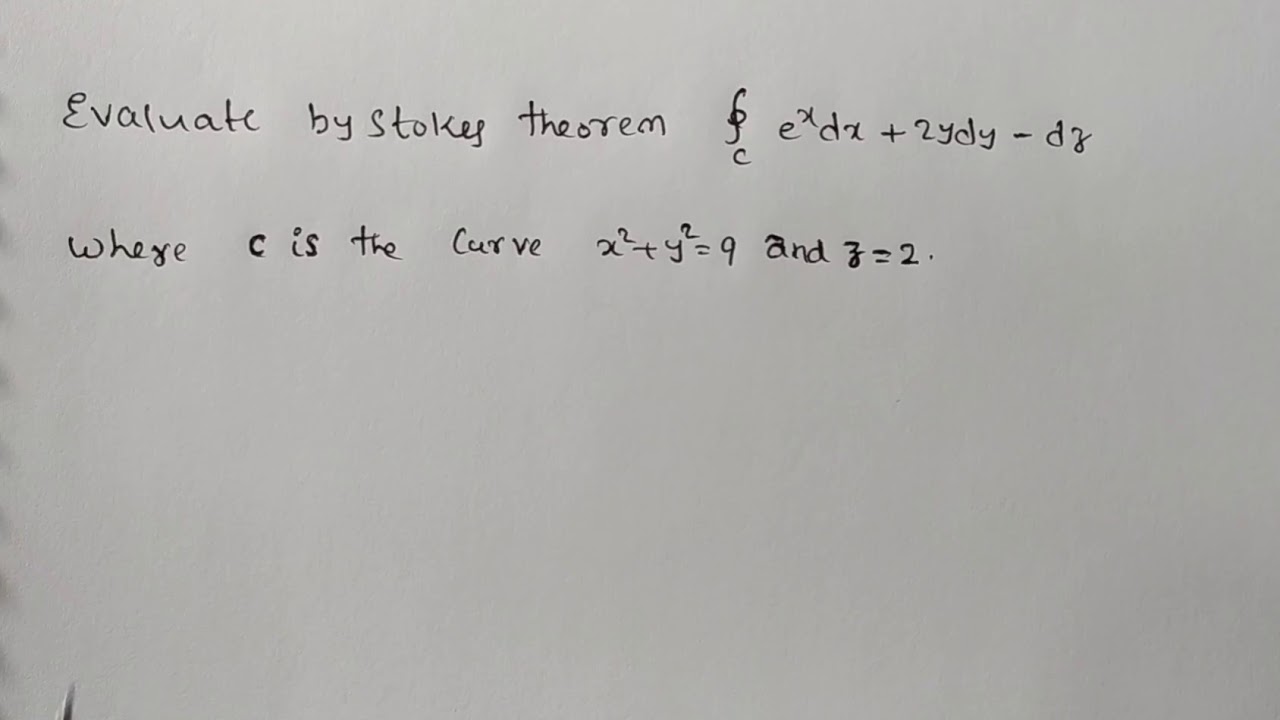 Evaluate by Stokes theorem ∮_C e^x dx + 2y dy - dz
where C is the Curve x²+y²=9 and z=2.